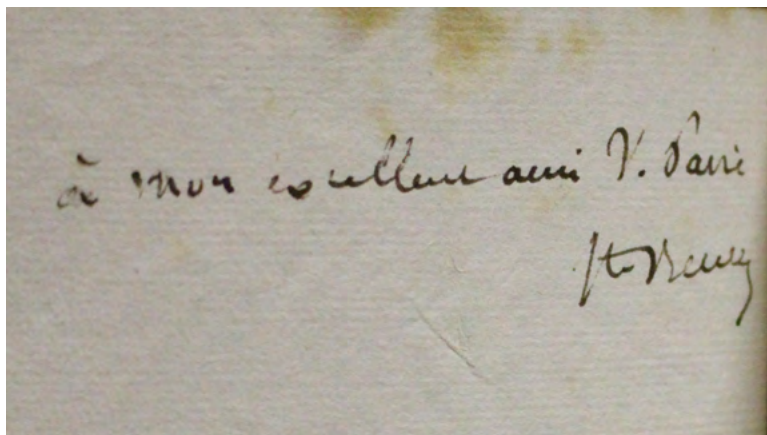 à mon excellent ami V. Pavie
Ste Beuve